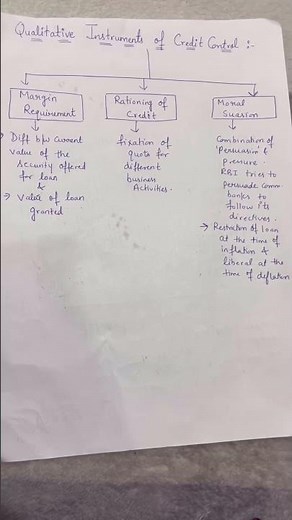 Qualitative Instruments of Credit Control :-
Margin
Requirement
→ Diff b/w current
value of the
security offered
for loan
&
→ Value of loan
granted
Rationing of
Credit
fixation of
quota for
different
business
Activities.
Moral
Suasion
Combination of
'Persuasion' &
pressure.
RBI tries to
persuade comm.
banks to
follow its
directives.
→ Restriction of loan
at the time of
inflation &
liberal at the
time of deflation